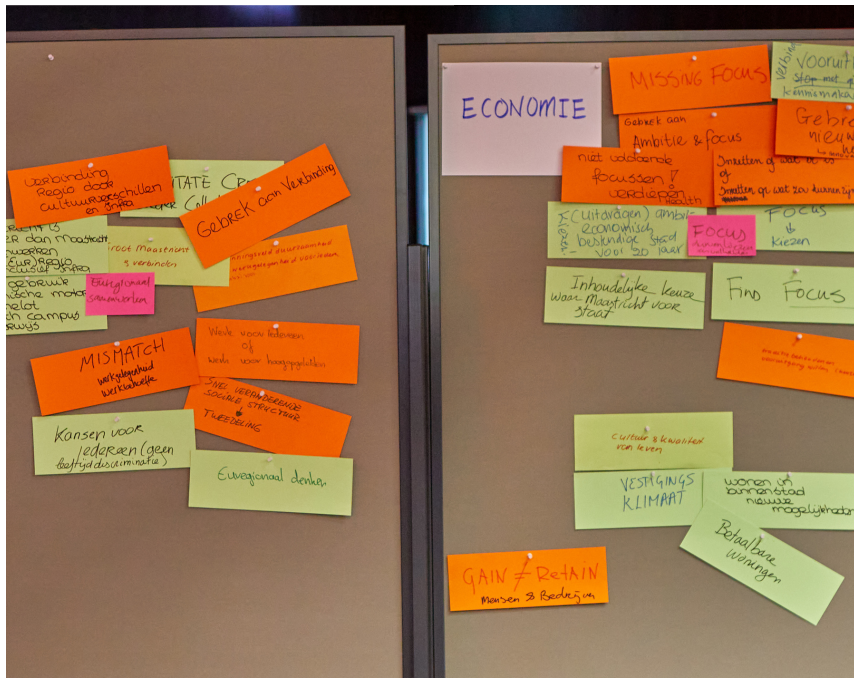 Verbinding
Regio door
Cultuurverschillen
en infra
Gebrek aan Verbinding
root Maastricht
& verbinden
Euregionaal
samenwerken
ER dan Maastricht
werken
gebruik
ische motor
elot
ch campus
rwijs
MISMATCH
werkgelegenheid
werkbehoefte
Werk voor iedereen
of
Werk voor hoogopgeleiden
SNEL VERANDERENDE
SOCIALE STRUCTUUR
TWEEDELING
Kansen voor
iedereen (geen
leeftijddiscriminatie)
Euregionaal denken
ECONOMIE
MISSING FOCUS
Verbin
VOORUIT
Stop met
kennismake
Gebrek aan
Ambitie & focus
Gebre
nieuw
niet voldoende
focussen !
verdiepen
Health
Inzetten op wat er is
of
Inzetten op wat zou kunnen zijn
(Uitdragen) ambitie
economisch
bestendige stad
voor 20 jaar
FOCUS
FOCUS
kiezen
Inhoudelijke keuze
waar Maastricht voor
staat
Find FOCUS
Cultuur & kwaliteit
van leven
VESTIGINGS
KLIMAAT
wonen in
binnenstad
nieuwe
mogelijkheden
Betaalbare
woningen
GAIN ≠ RETAIN
Mensen & Bedrijven